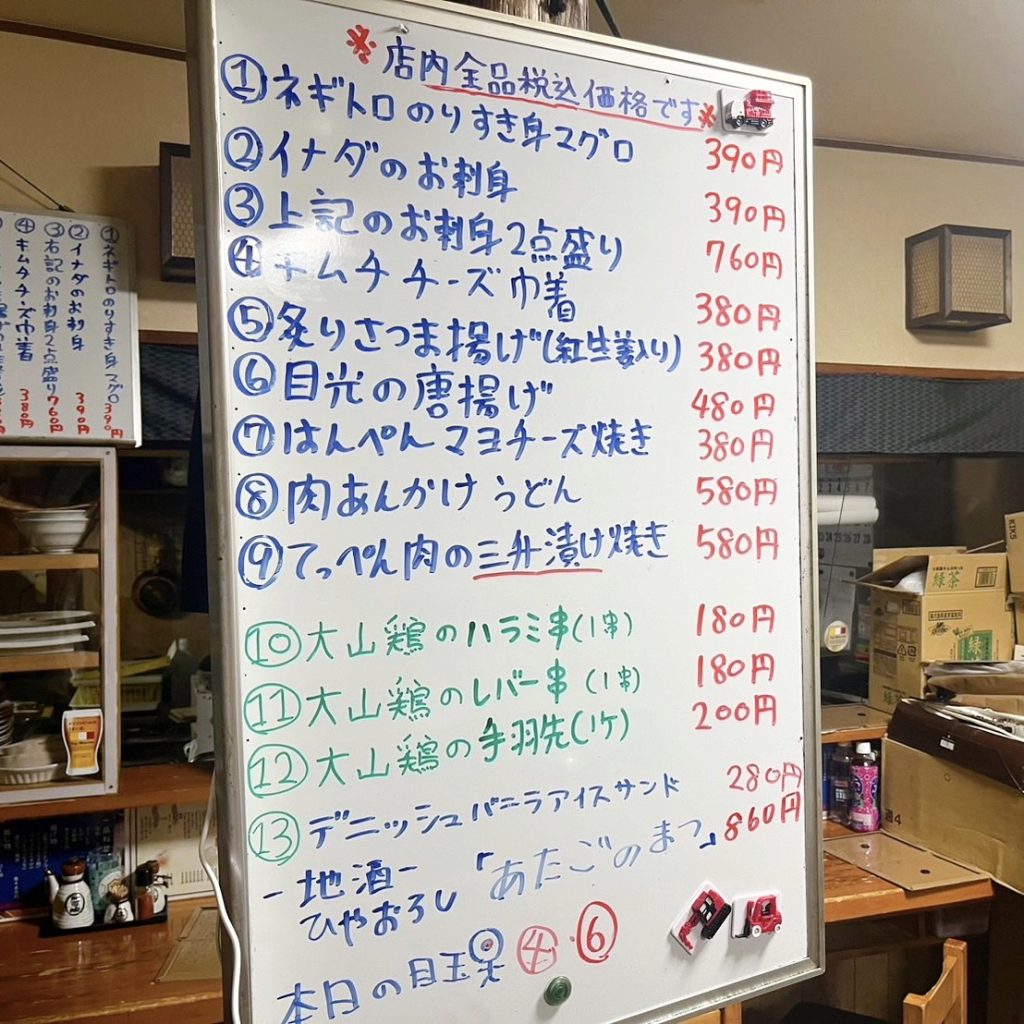 ※店内全品税込価格です※
①ネギトロのりすき身マグロ 390円
②イナダのお刺身 390円
③上記のお刺身2点盛り 760円
④キムチチーズ巾着 380円
⑤炙りさつま揚げ(紅生姜入り) 380円
⑥目光の唐揚げ 480円
⑦はんぺんマヨチーズ焼き 380円
⑧肉あんかけうどん 580円
⑨てっぺん肉の三升漬け焼き 580円
⑩大山鶏のハラミ串(1串) 180円
⑪大山鶏のレバー串(1串) 180円
⑫大山鶏の手羽先(1ケ) 200円
⑬デニッシュバニラアイスサンド 280円
-地酒-
ひやおろし「あたごのまつ」860円
本日の目玉 ④・⑥
①ネギトロのりすき身マグロ 390円
②イナダのお刺身 390円
③右記のお刺身2点盛り 760円
④キムチチーズ巾着 380円
緑茶